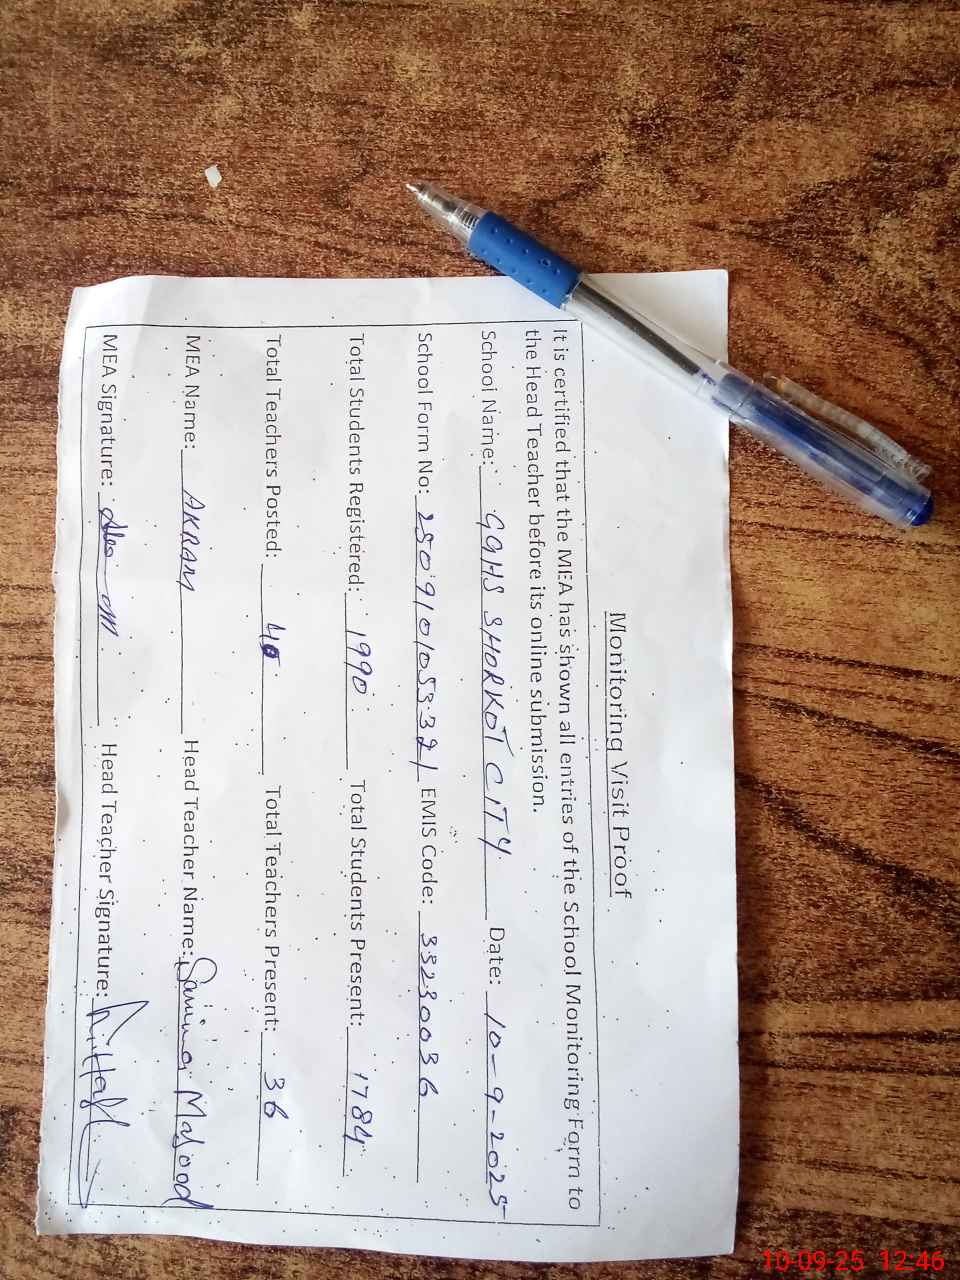 Monitoring Visit Proof
It is certified that the MEA has shown all entries of the School Monitoring Form to
the Head Teacher before its online submission.
School Name: GGHS SHORKOT CITY Date: 10-9-2025
School Form No: 2509101053321 EMIS Code: 33230036
Total Students Registered: 1990 Total Students Present: 1784
Total Teachers Posted: 40 Total Teachers Present: 36
MEA Name: AKRAM Head Teacher Name:
MEA Signature: Head Teacher Signature:
10-09-25 12:46